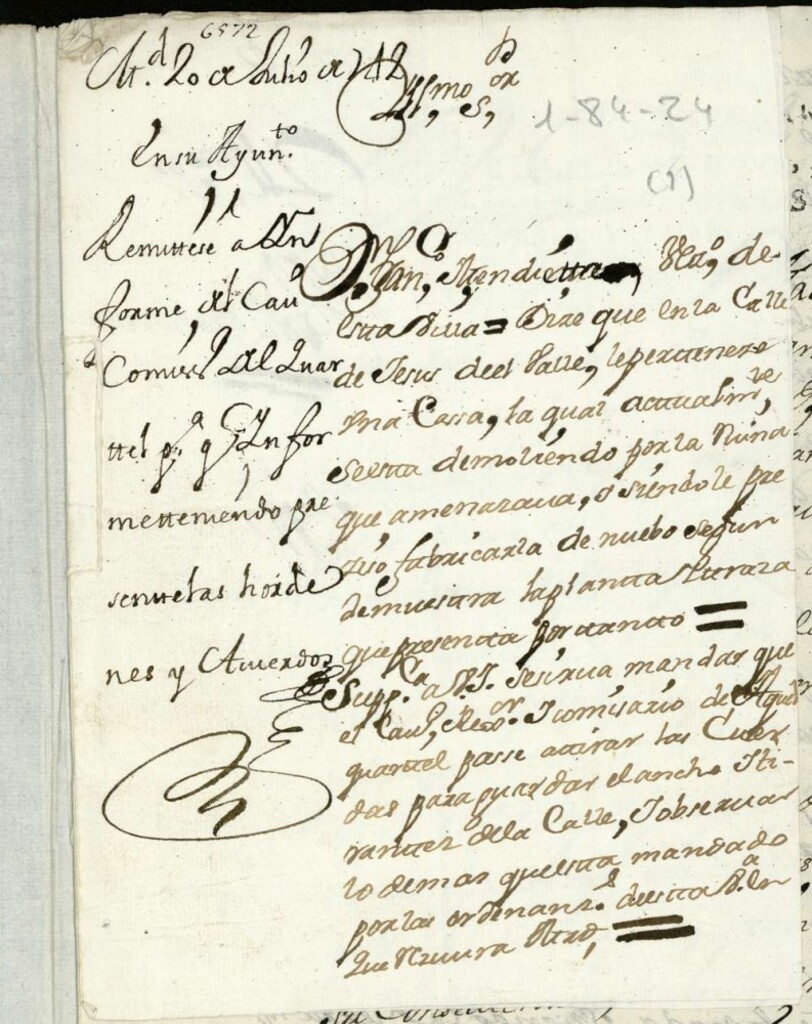 6572
M.d 20 de Julio de 1742
Yll,mo S,or
1-84-24
(1)
En su Ayun.to
Remittese a Ynforme, del Cau.o
Comiss.o del Quar
ttel p.a q.e Ynfor
me tteniendo pre
senttes las horde
nes y Acuerdos
Fran,co Vez,o de
estta Villa = Dize que en la Calle
de Jesus deel Valle, le pertteneze
Una Cassa, la qual acttualm,te
se estta demoliendo por la Ruina
que, amenazava, y siendole pre
ziso fabricarla de nuebo segun
demuestra la plantta y traza
que presentta por tantto =
Supp.ca a V.I. se sirva mandar que
el Cau,o Rex.or y comisario de Aquel
quarttel passe a ttirar las Cuer
das para guardar el ancho y ti-
rantez dela Calle, y observar
lo demas questta mandado
por las ordenanz.s deestta V.a En
que Rezivira Mrzd, =